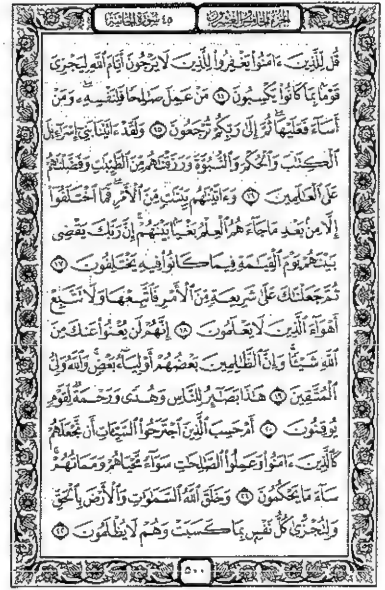 الجزء الخامس والعشرون
٤٥ سورة الجاثية
قُل لِّلَّذِينَ ءَامَنُواْ يَغْفِرُواْ لِلَّذِينَ لَا يَرْجُونَ أَيَّامَ ٱللَّهِ لِيَجْزِيَ
قَوْمَۢا بِمَا كَانُواْ يَكْسِبُونَ ١٤ مَنْ عَمِلَ صَٰلِحٗا فَلِنَفْسِهِۦۖ وَمَنْ
أَسَآءَ فَعَلَيْهَاۖ ثُمَّ إِلَىٰ رَبِّكُمْ تُرْجَعُونَ ١٥ وَلَقَدْ ءَاتَيْنَا بَنِيٓ إِسْرَٰٓءِيلَ
ٱلْكِتَٰبَ وَٱلْحُكْمَ وَٱلنُّبُوَّةَ وَرَزَقْنَٰهُم مِّنَ ٱلطَّيِّبَٰتِ وَفَضَّلْنَٰهُمْ
عَلَى ٱلْعَٰلَمِينَ ١٦ وَءَاتَيْنَٰهُم بَيِّنَٰتٖ مِّنَ ٱلْأَمْرِۖ فَمَا ٱخْتَلَفُوٓاْ
إِلَّا مِنۢ بَعْدِ مَا جَآءَهُمُ ٱلْعِلْمُ بَغْيَۢا بَيْنَهُمْۚ إِنَّ رَبَّكَ يَقْضِي
بَيْنَهُمْ يَوْمَ ٱلْقِيَٰمَةِ فِيمَا كَانُواْ فِيهِ يَخْتَلِفُونَ ١٧
ثُمَّ جَعَلْنَٰكَ عَلَىٰ شَرِيعَةٖ مِّنَ ٱلْأَمْرِ فَٱتَّبِعْهَا وَلَا تَتَّبِعْ
أَهْوَآءَ ٱلَّذِينَ لَا يَعْلَمُونَ ١٨ إِنَّهُمْ لَن يُغْنُواْ عَنكَ مِنَ
ٱللَّهِ شَيْـٔٗاۚ وَإِنَّ ٱلظَّٰلِمِينَ بَعْضُهُمْ أَوْلِيَآءُ بَعْضٖۖ وَٱللَّهُ وَلِيُّ
ٱلْمُتَّقِينَ ١٩ هَٰذَا بَصَٰٓئِرُ لِلنَّاسِ وَهُدٗى وَرَحْمَةٞ لِّقَوْمٖ
يُوقِنُونَ ٢٠ أَمْ حَسِبَ ٱلَّذِينَ ٱجْتَرَحُواْ ٱلسَّيِّـَٔاتِ أَن نَّجْعَلَهُمْ
كَٱلَّذِينَ ءَامَنُواْ وَعَمِلُواْ ٱلصَّٰلِحَٰتِ سَوَآءٗ مَّحْيَاهُمْ وَمَمَاتُهُمْۚ
سَآءَ مَا يَحْكُمُونَ ٢١ وَخَلَقَ ٱللَّهُ ٱلسَّمَٰوَٰتِ وَٱلْأَرْضَ بِٱلْحَقِّ
وَلِتُجْزَىٰ كُلُّ نَفْسِۭ بِمَا كَسَبَتْ وَهُمْ لَا يُظْلَمُونَ ٢٢
٥٠٠